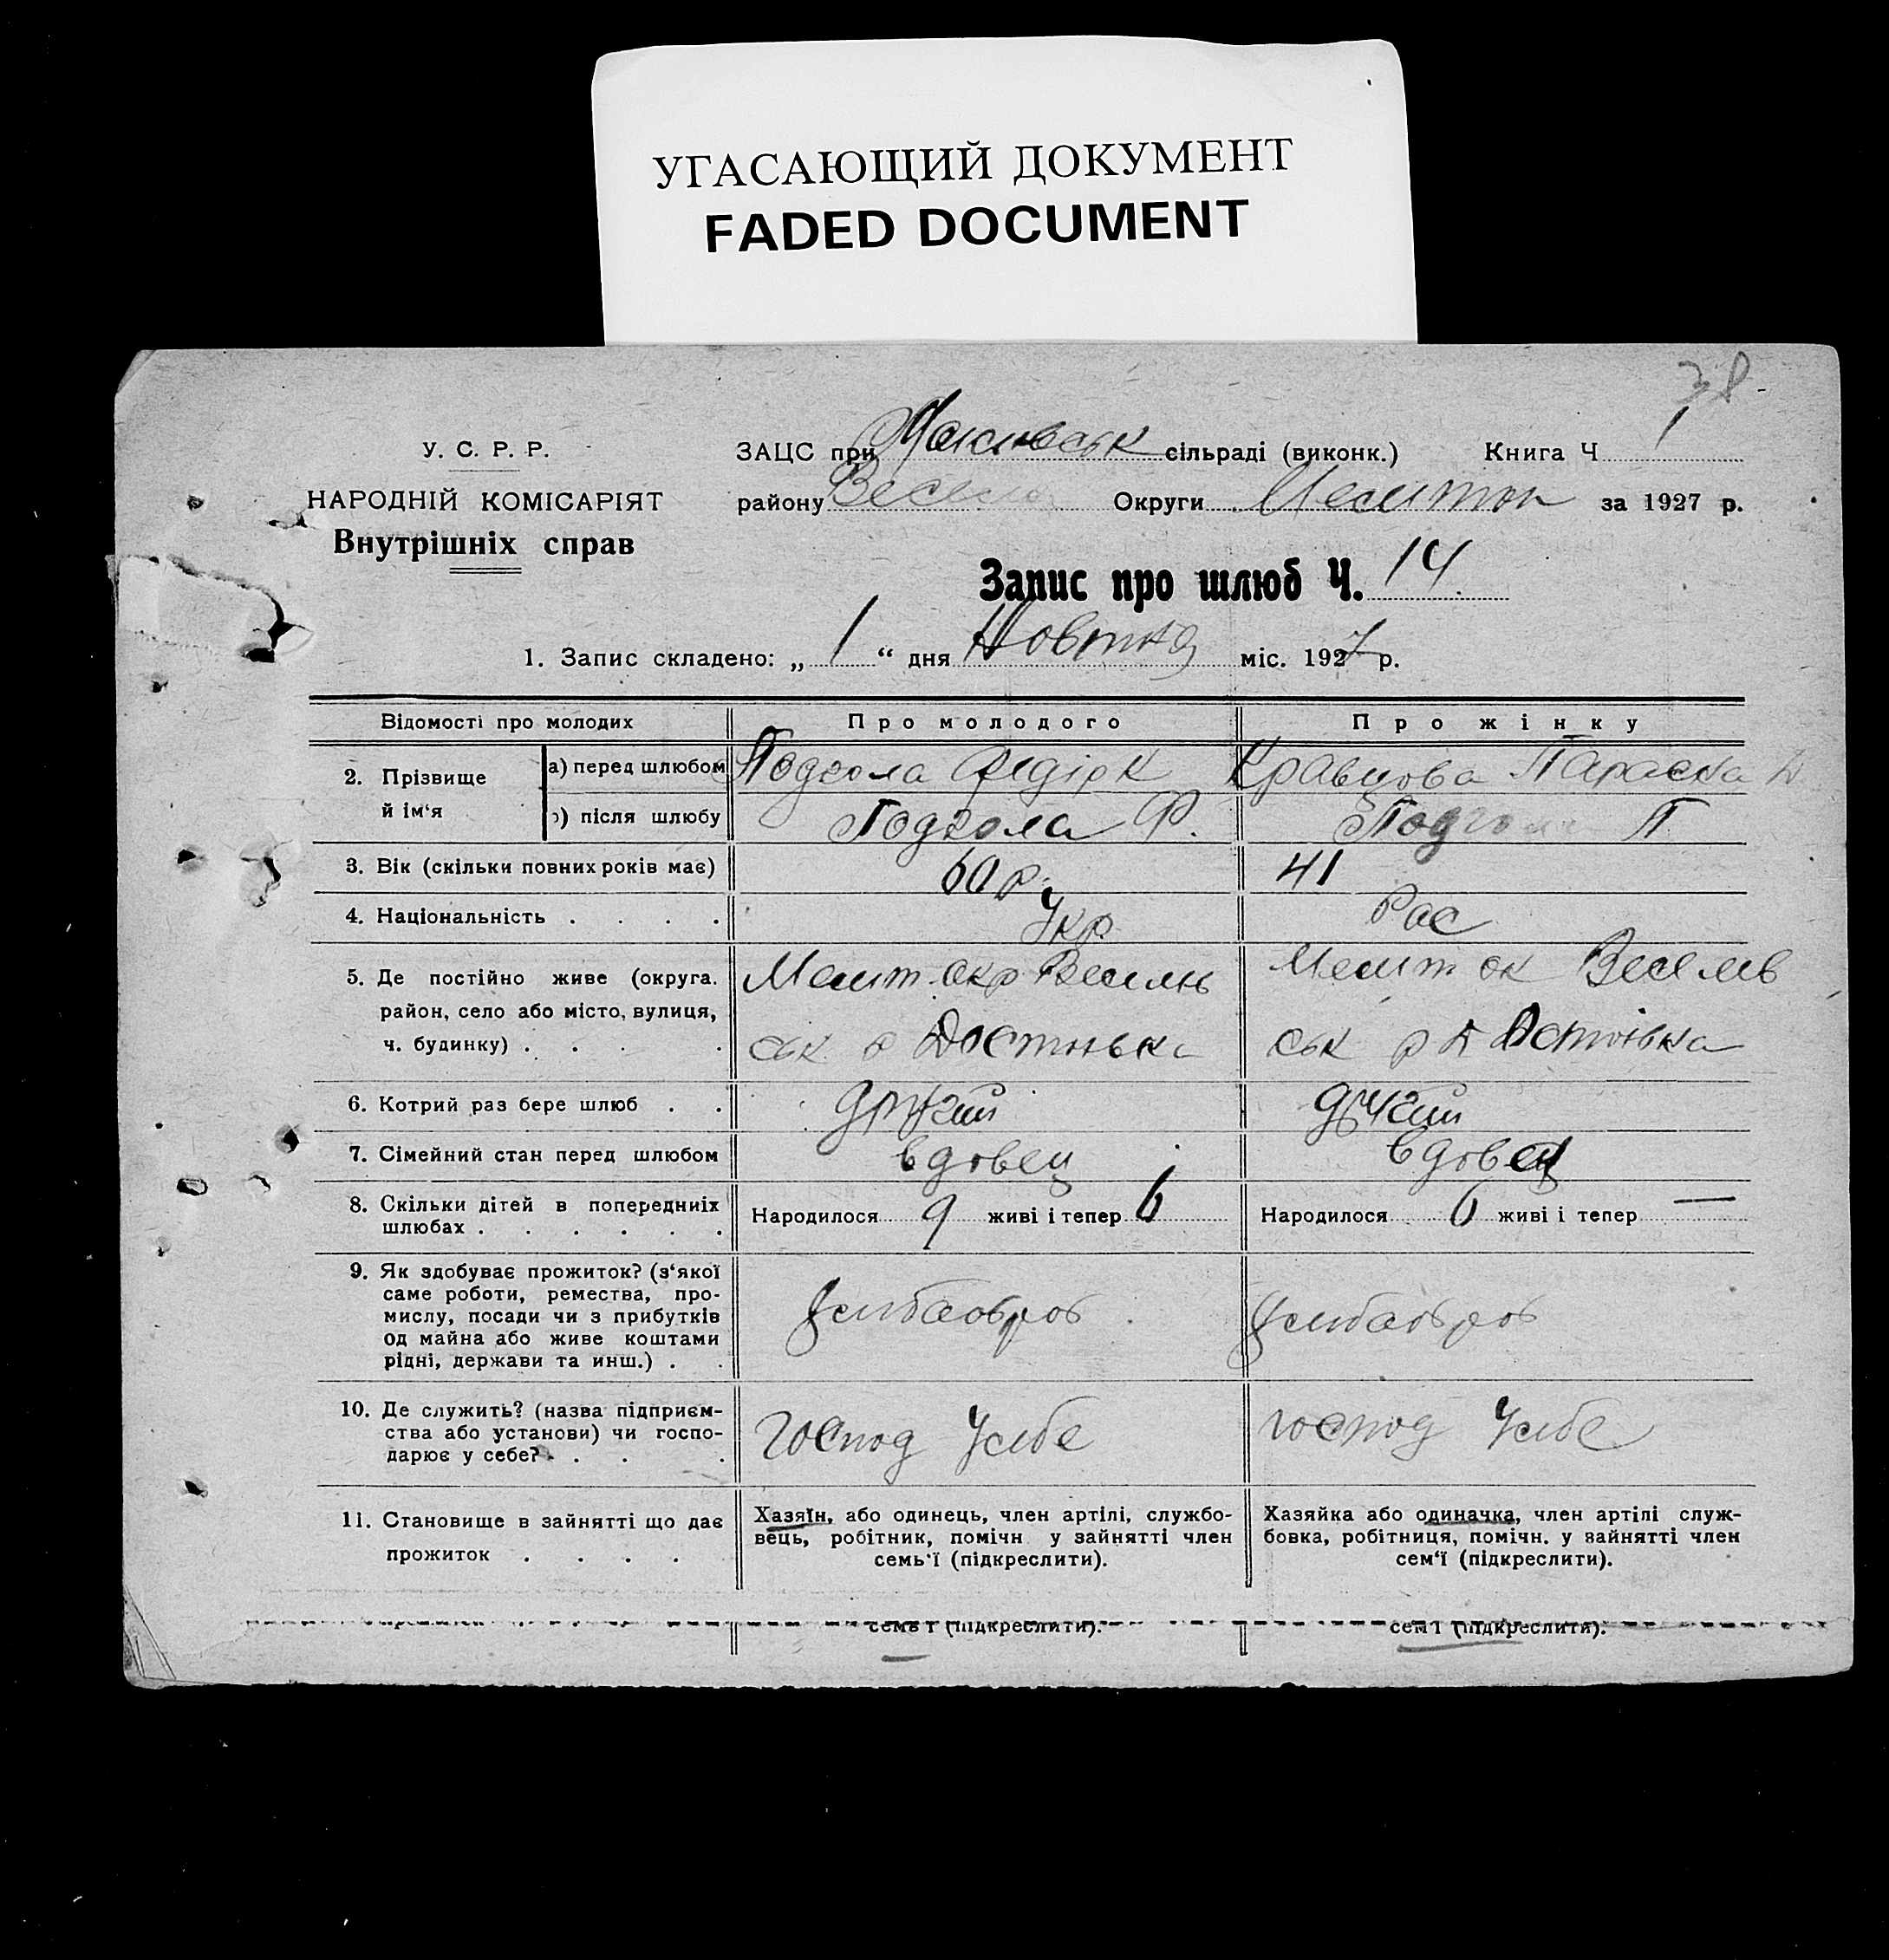 УГАСАЮЩИЙ ДОКУМЕНТ
FADED DOCUMENT
38
У. С. Р. Р.
НАРОДНІЙ КОМІСАРІЯТ
Внутрішніх справ
ЗАЦС при сільраді (виконк.) Книга Ч 1
району Весел Округи за 1927 р.
Запис про шлюб Ч. 14
1. Запис складено: „ 1 “ дня Жовтня міс. 1927 р.
Відомості про молодих
Про молодого
Про жінку
2. Прізвище й ім‘я
а) перед шлюбом
Кравцова Параска
б) після шлюбу
Подгола Ф.
П
3. Вік (скільки повних років має)
60 р.
41
4. Національність . . . .
Укр
Рос
5. Де постійно живе (округа.
район, село або місто, вулиця,
ч. будинку) . . .
Меліт окр
ськ р
Меліт ок Веселів
ськ р
6. Котрий раз бере шлюб . .
другий
другий
7. Сімейний стан перед шлюбом
вдовец
вдовец
8. Скільки дітей в попередниіх
шлюбах . . . . . .
Народилося 9 живі і тепер 6
Народилося 6 живі і тепер —
9. Як здобуває прожиток? (з‘якої
саме роботи, ремества, про-
мислу, посади чи з прибутків
од майна або живе коштами
рідні, держави та инш.) . .
10. Де служить? (назва підприєм-
ства або установи) чи госпо-
дарює у себе? . . .
господ Усебе
господ Усебе
11. Становище в зайнятті що дає
прожиток . . . .
Хазяїн, або одинець, член артілі, службо-
вець, робітник, помічн у зайнятті член
семь‘ї (підкреслити).
Хазяйка або одиначка, член артілі служ-
бовка, робітниця, помічн. у зайнятті член
сем‘ї (підкреслити).
семь ї (підкреслити).
сем ї (підкреслити).